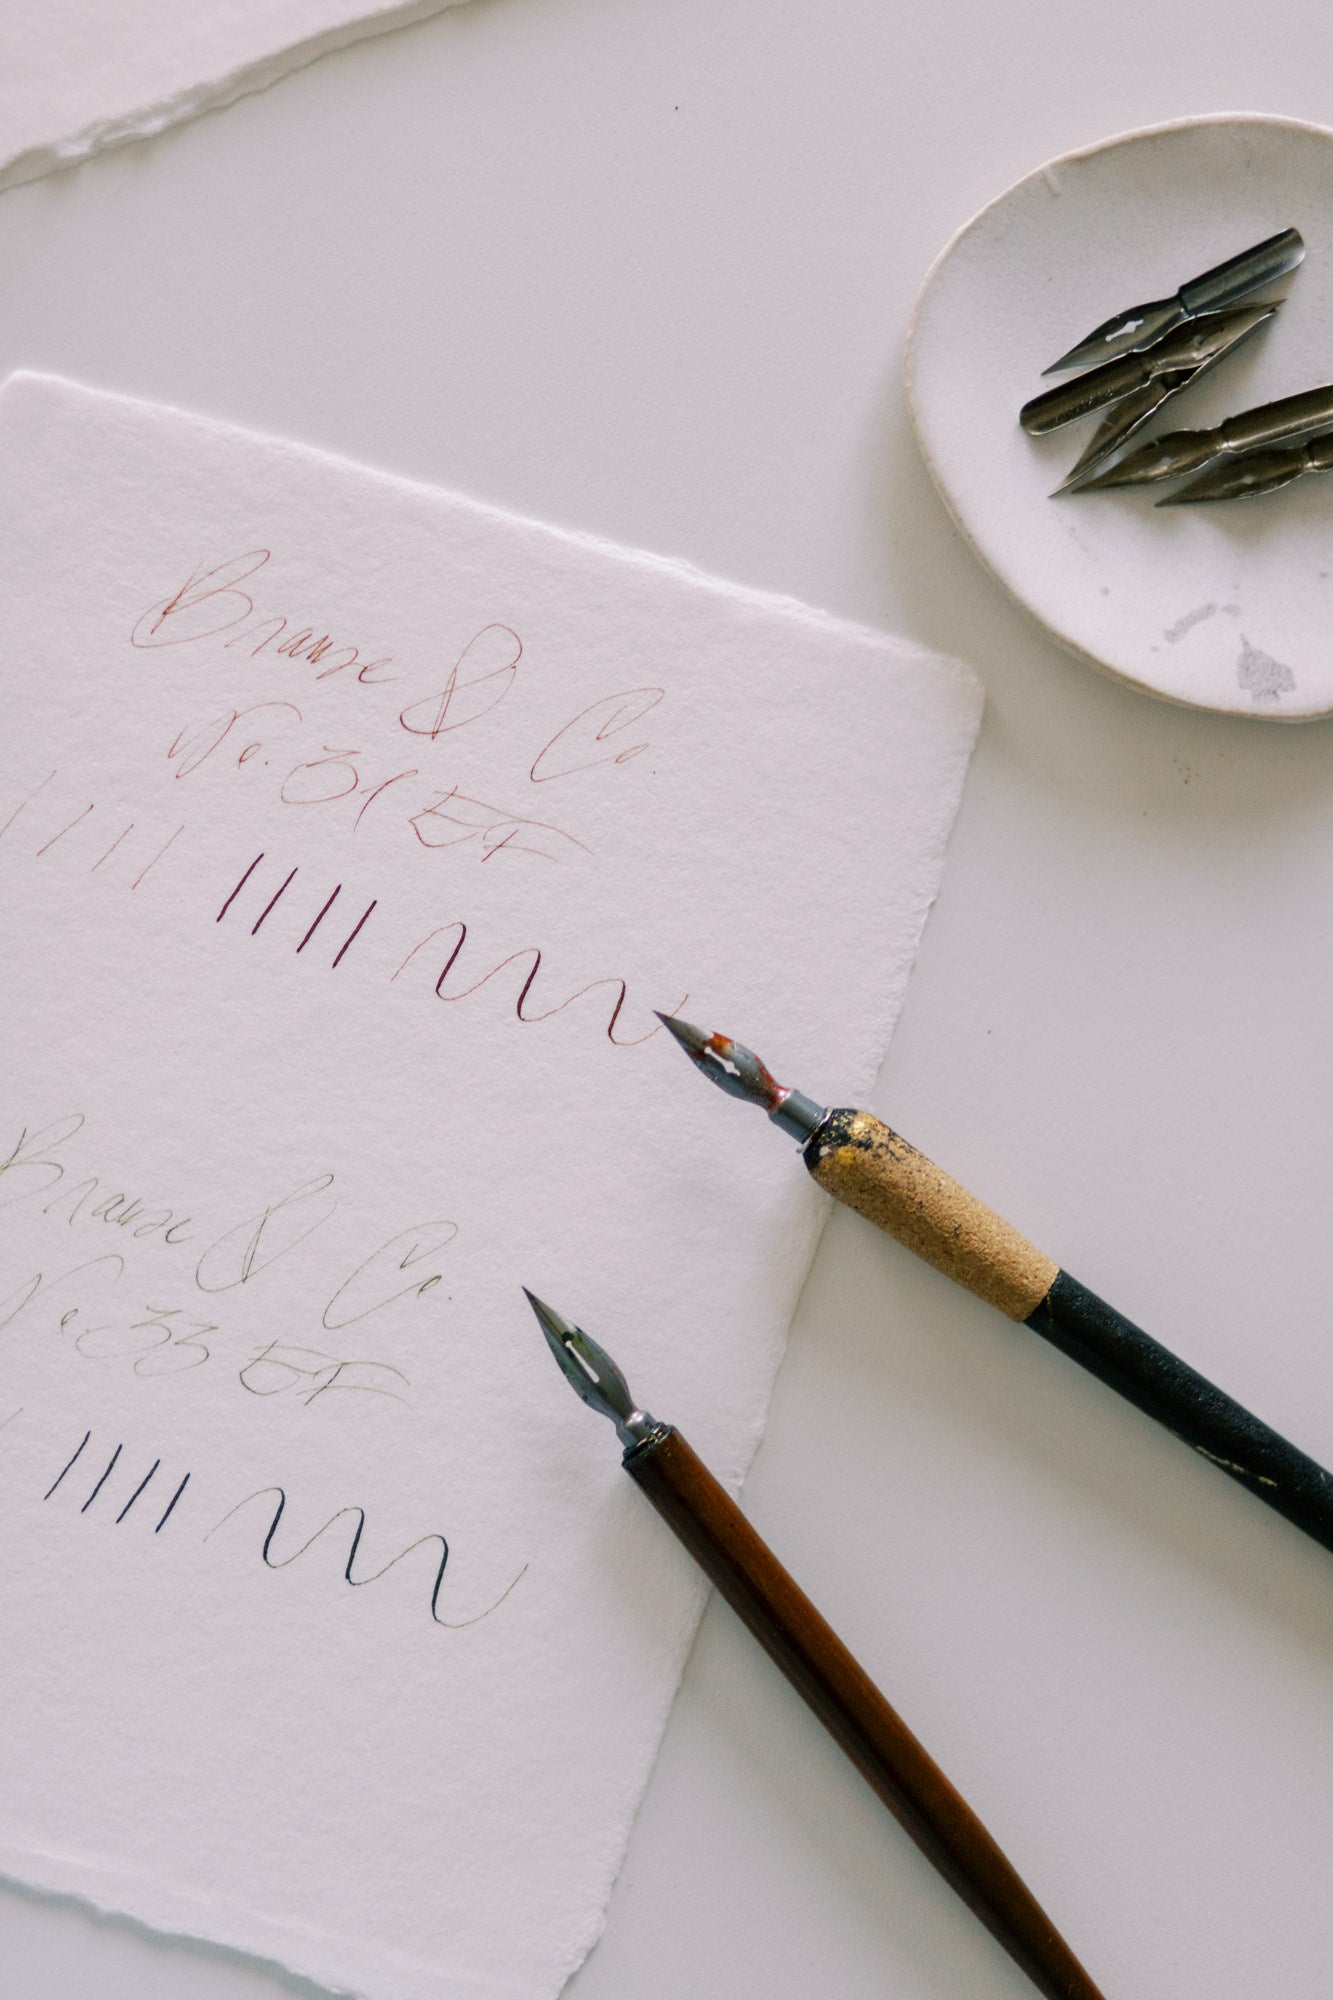 Brause & Co.
No. 31 EF
Brause & Co.
No. 33 EF